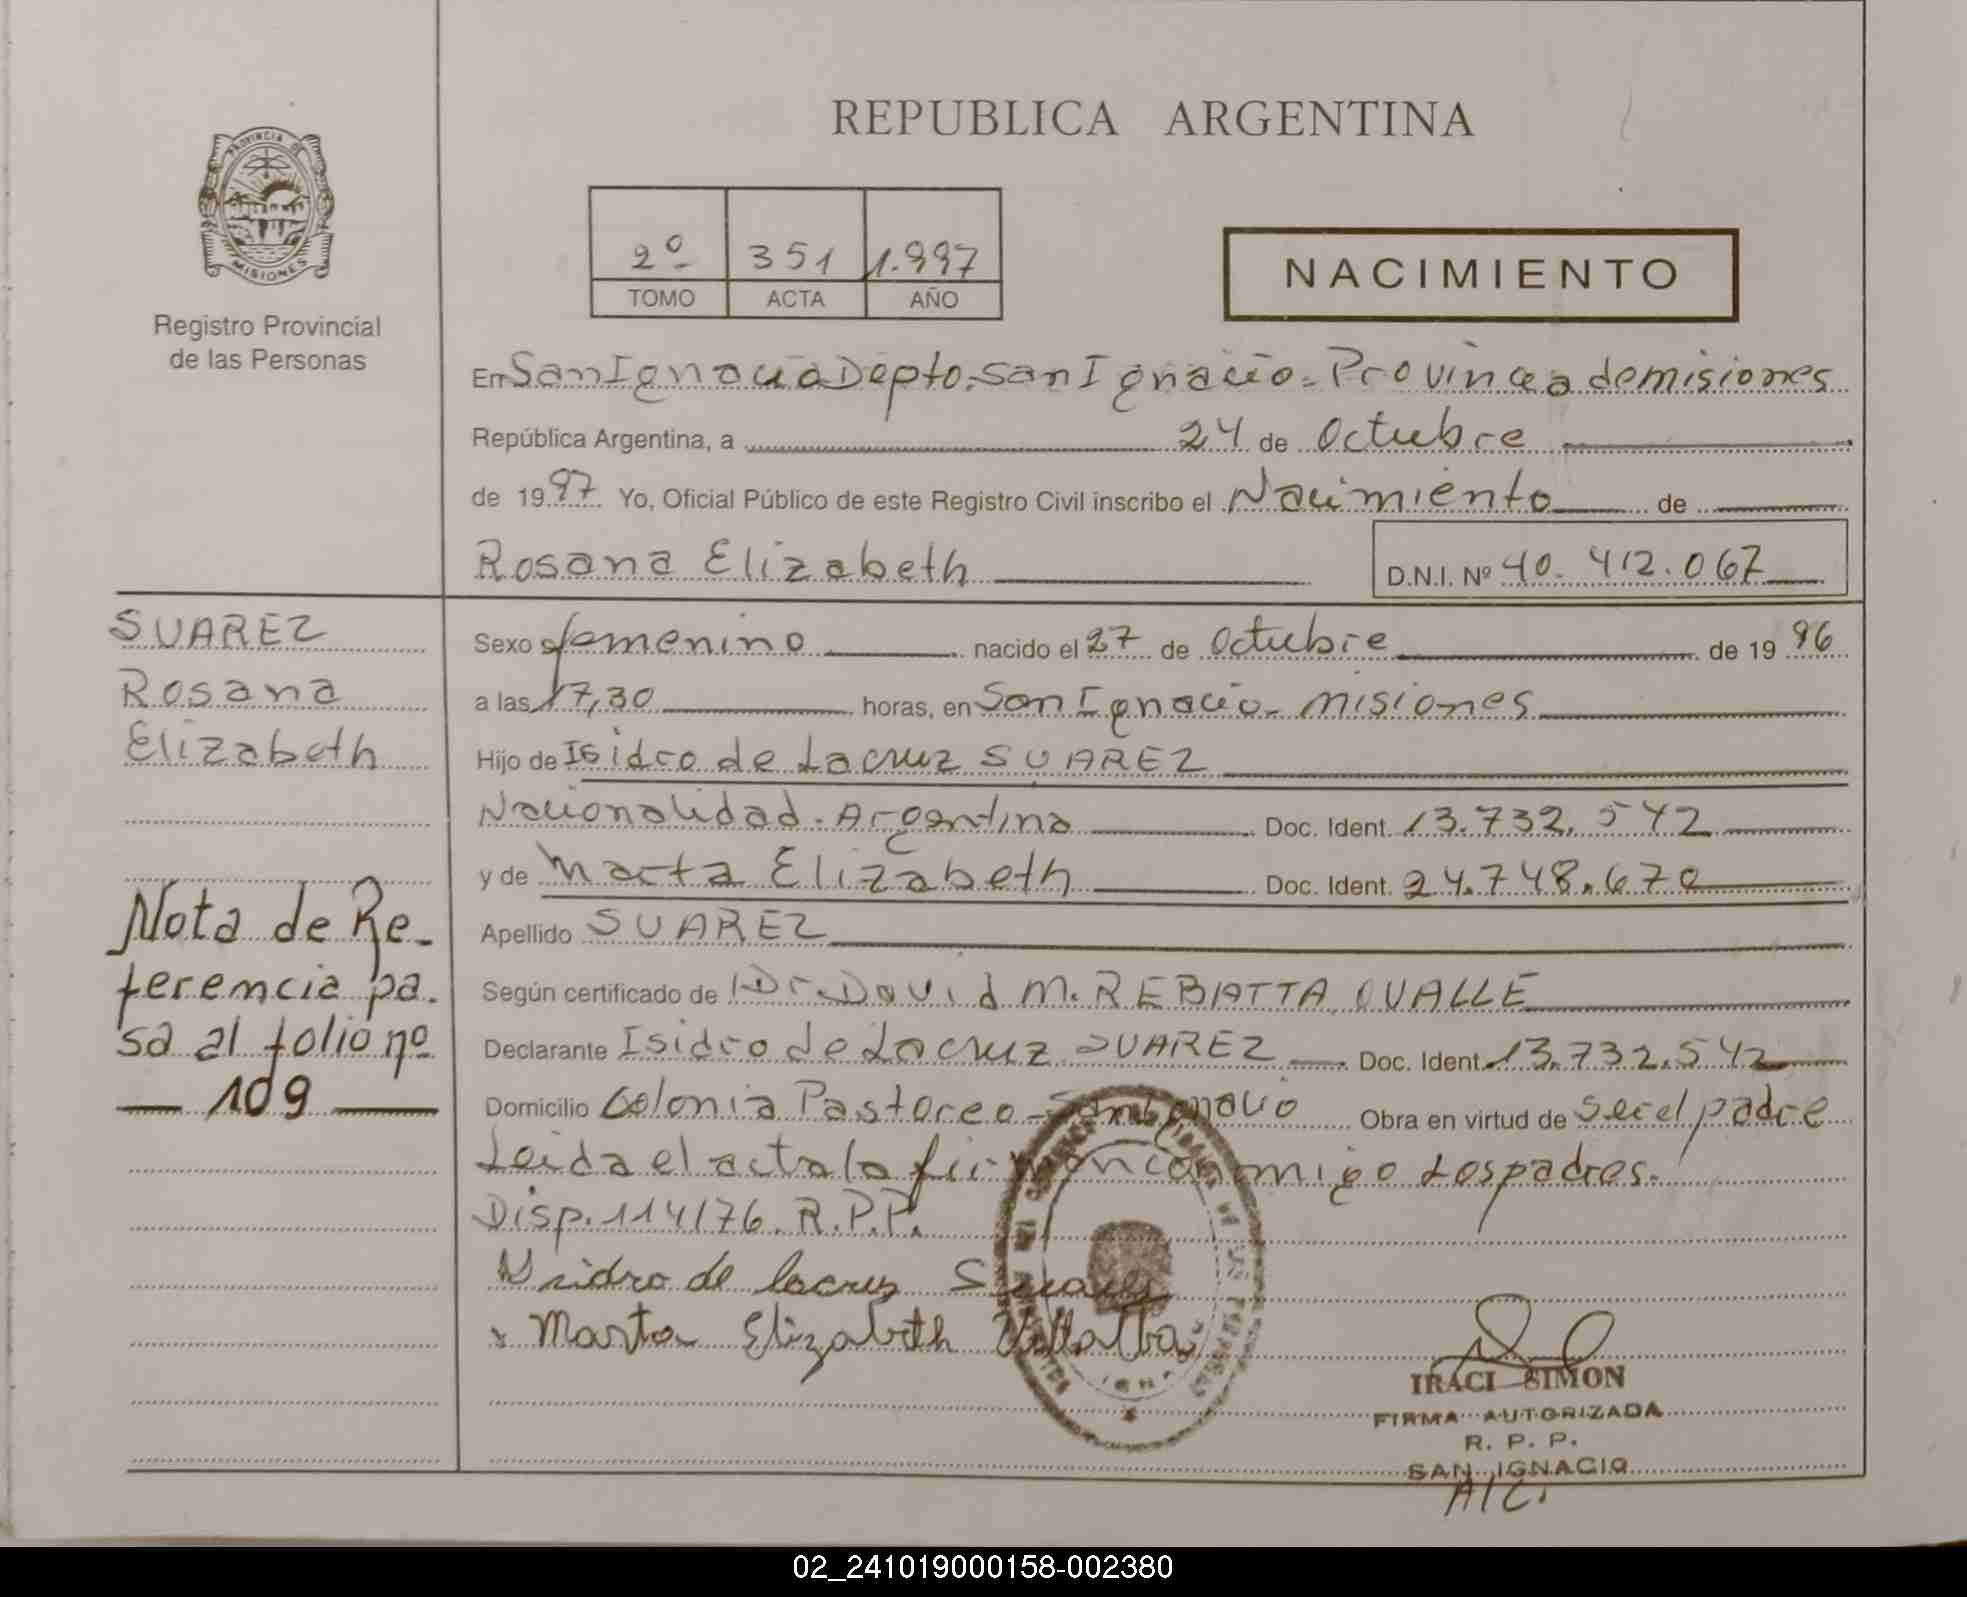 REPUBLICA ARGENTINA
PROVINCIA DE
MISIONES
Registro Provincial
de las Personas
2º 351 1.997
TOMO ACTA AÑO
NACIMIENTO
En San Ignacio Depto. San Ignacio - Provincia de misiones
República Argentina, a 24 de Octubre
de 1997 Yo, Oficial Público de este Registro Civil inscribo el Nacimiento de
Rosana Elizabeth D.N.I. Nº 40.412.067
SUAREZ
Rosana
Elizabeth
Nota de Re-
ferencia pa.
sa al folio nº
109
Sexo femenino nacido el 27 de Octubre de 1996
a las 17,30 horas, en San Ignacio - misiones
Hijo de Isidro de Lacruz SUAREZ
Nacionalidad. Argentina Doc. Ident. 13.732.542
y de Marta Elizabeth Doc. Ident. 24.748.670
Apellido SUAREZ
Según certificado de Dr. David M. REBIATTA OVALLE
Declarante Isidro de Lacruz SUAREZ Doc. Ident. 13.732.542
Domicilio Colonia Pastoreo - San Ignacio Obra en virtud de ser el padre
Leida el acta la firman conmigo Los padres.
Disp. 114/76. R.P.P.
Isidro de lacruz Suarez
x Marta Elizabeth Villalba
IRACI SIMON
FIRMA AUTORIZADA
R. P. P.
SAN IGNACIO
A/C.
02_241019000158-002380